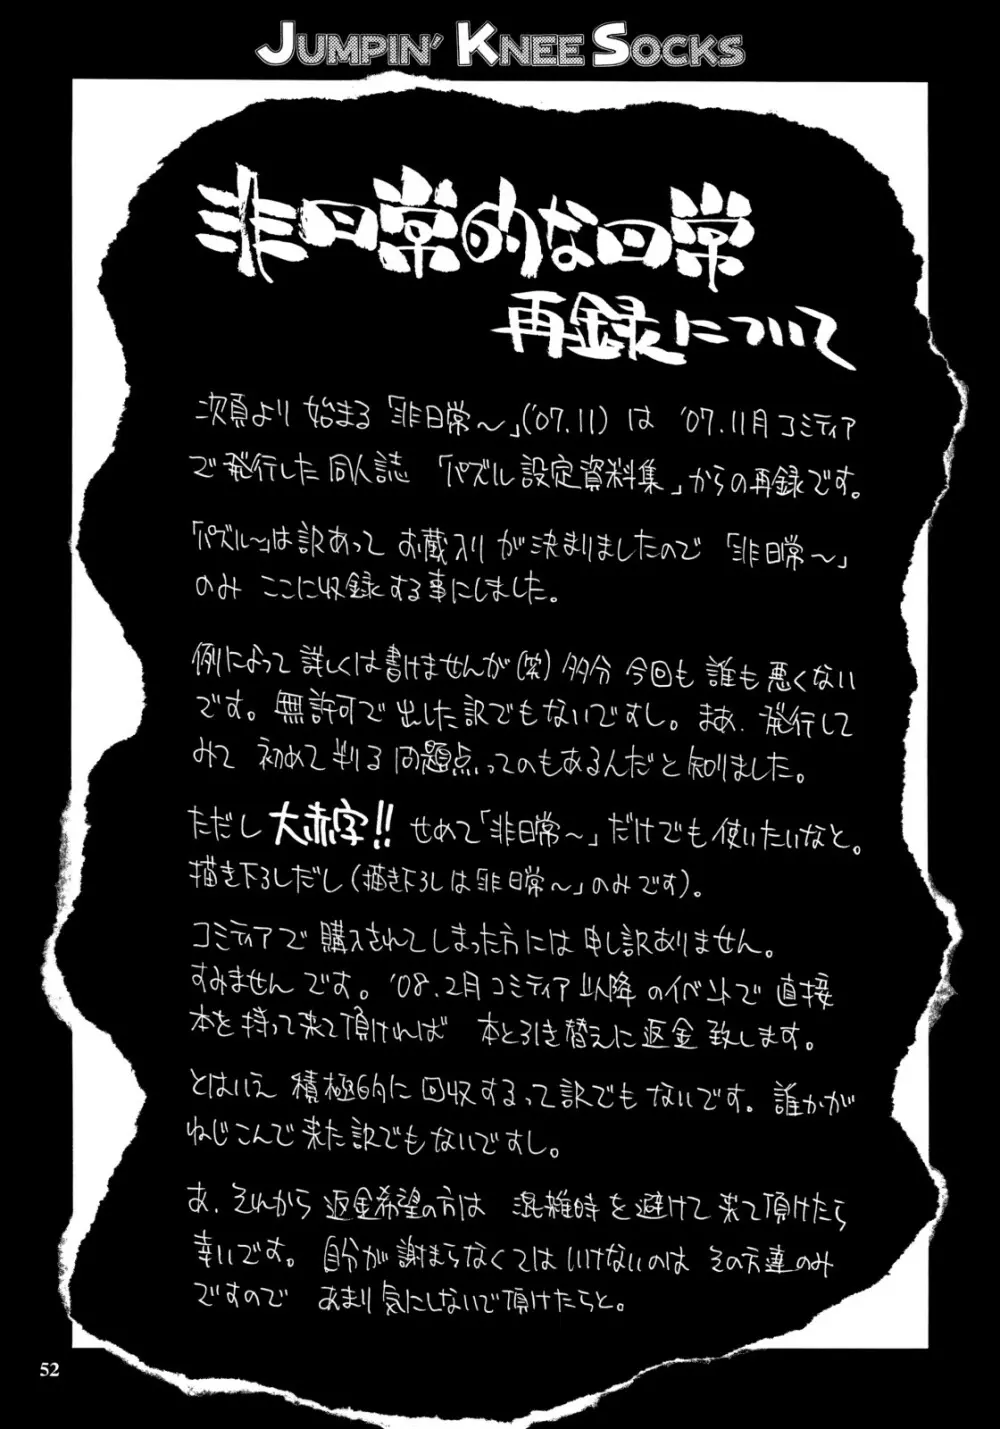 JUMPIN' KNEE SOCKS
非日常的な日常
再録について
次頁より始まる「非日常〜」('07.11)は '07.11月コミティア
で発行した同人誌「パズル設定資料集」からの再録です。
「パズル〜」は訳あって お蔵入りが決まりましたので「非日常〜」
のみ ここに収録する事にしました。
例によって詳しくは書けませんが(笑)多分 今回も誰も悪くない
です。無許可で出した訳でもないですし。まあ、発行して
みて 初めて判る問題点ってのもあるんだと知りました。
ただし大赤字!! せめて「非日常〜」だけでも使いたいなと。
描き下ろしだし(描き下ろしは「非日常〜」のみです)。
コミティアで購入されてしまった方には申し訳ありません。
すみませんです。'08.2月コミティア以降のイベントで直接
本を持って来て頂ければ 本と引き替えに返金致します。
とはいえ積極的に回収するって訳でもないです。誰かが
ねじこんで来た訳でもないですし。
あ、それから返金希望の方は 混雑時を避けて来て頂けたら
幸いです。自分が謝まらなくてはいけないのは その方達のみ
ですので あまり気にしないで頂けたらと。
52